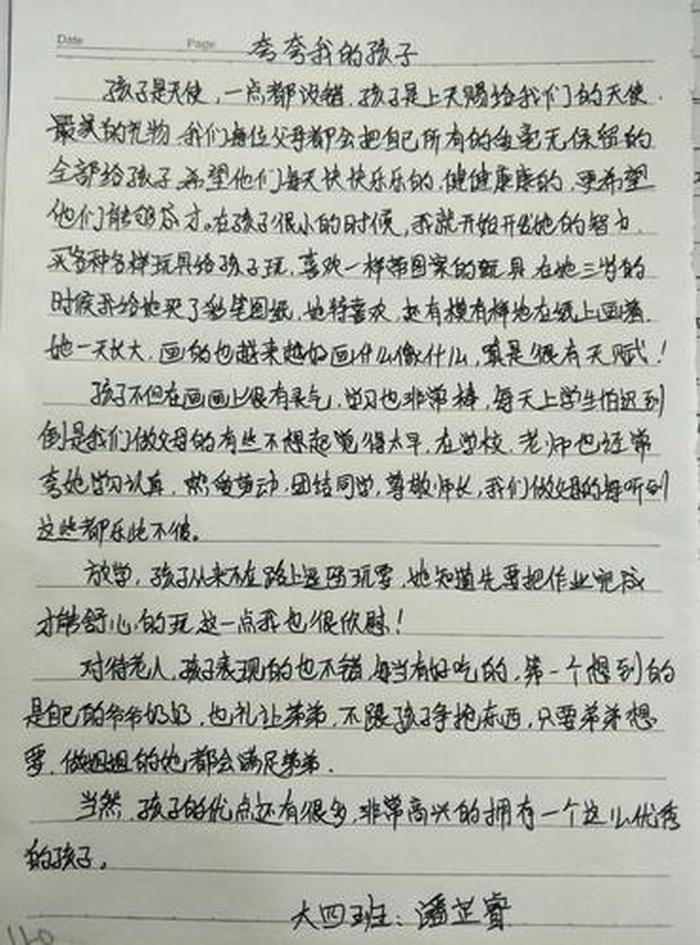 Date
Page
夸夸我的孩子
孩子是天使，一点都没错，孩子是上天赐给我们的天使.
最美的礼物.我们每位父母都会把自己所有的丝毫无保留的
全部给孩子.希望他们每天快快乐乐的,健健康康的,更希望
他们能够成才。在孩子很小的时候,我就开始开发她的智力.
买各种各样玩具给孩子玩,喜欢一样带图案的玩具.在她三岁的
时候我给她买了彩笔图纸,她特喜欢,还有模有样地在纸上画着.
她一天长大,画的也越来越好画什么像什么,真是很有天赋！
孩子不但在画画上很有灵气,学习也非常棒,每天上学生怕迟到
倒是我们做父母的有些不想起觉得太早,在学校,老师也经常
夸她学习认真,热爱劳动,团结同学,尊敬师长,我们做父母的每听到
这些都乐此不疲。
放学,孩子从来不在路上逗留玩耍,她知道先要把作业完成
才能舒心的玩这一点我也很欣慰！
对待老人,孩子表现的也不错,每当有好吃的,第一个想到的
是自己的爷爷奶奶,也礼让弟弟,不跟孩子争抢东西,只要弟弟想
要,做姐姐的她都会满足弟弟.
当然,孩子的优点还有很多,非常高兴的拥有一个这么优秀
的孩子。
大四班：潘芷睿